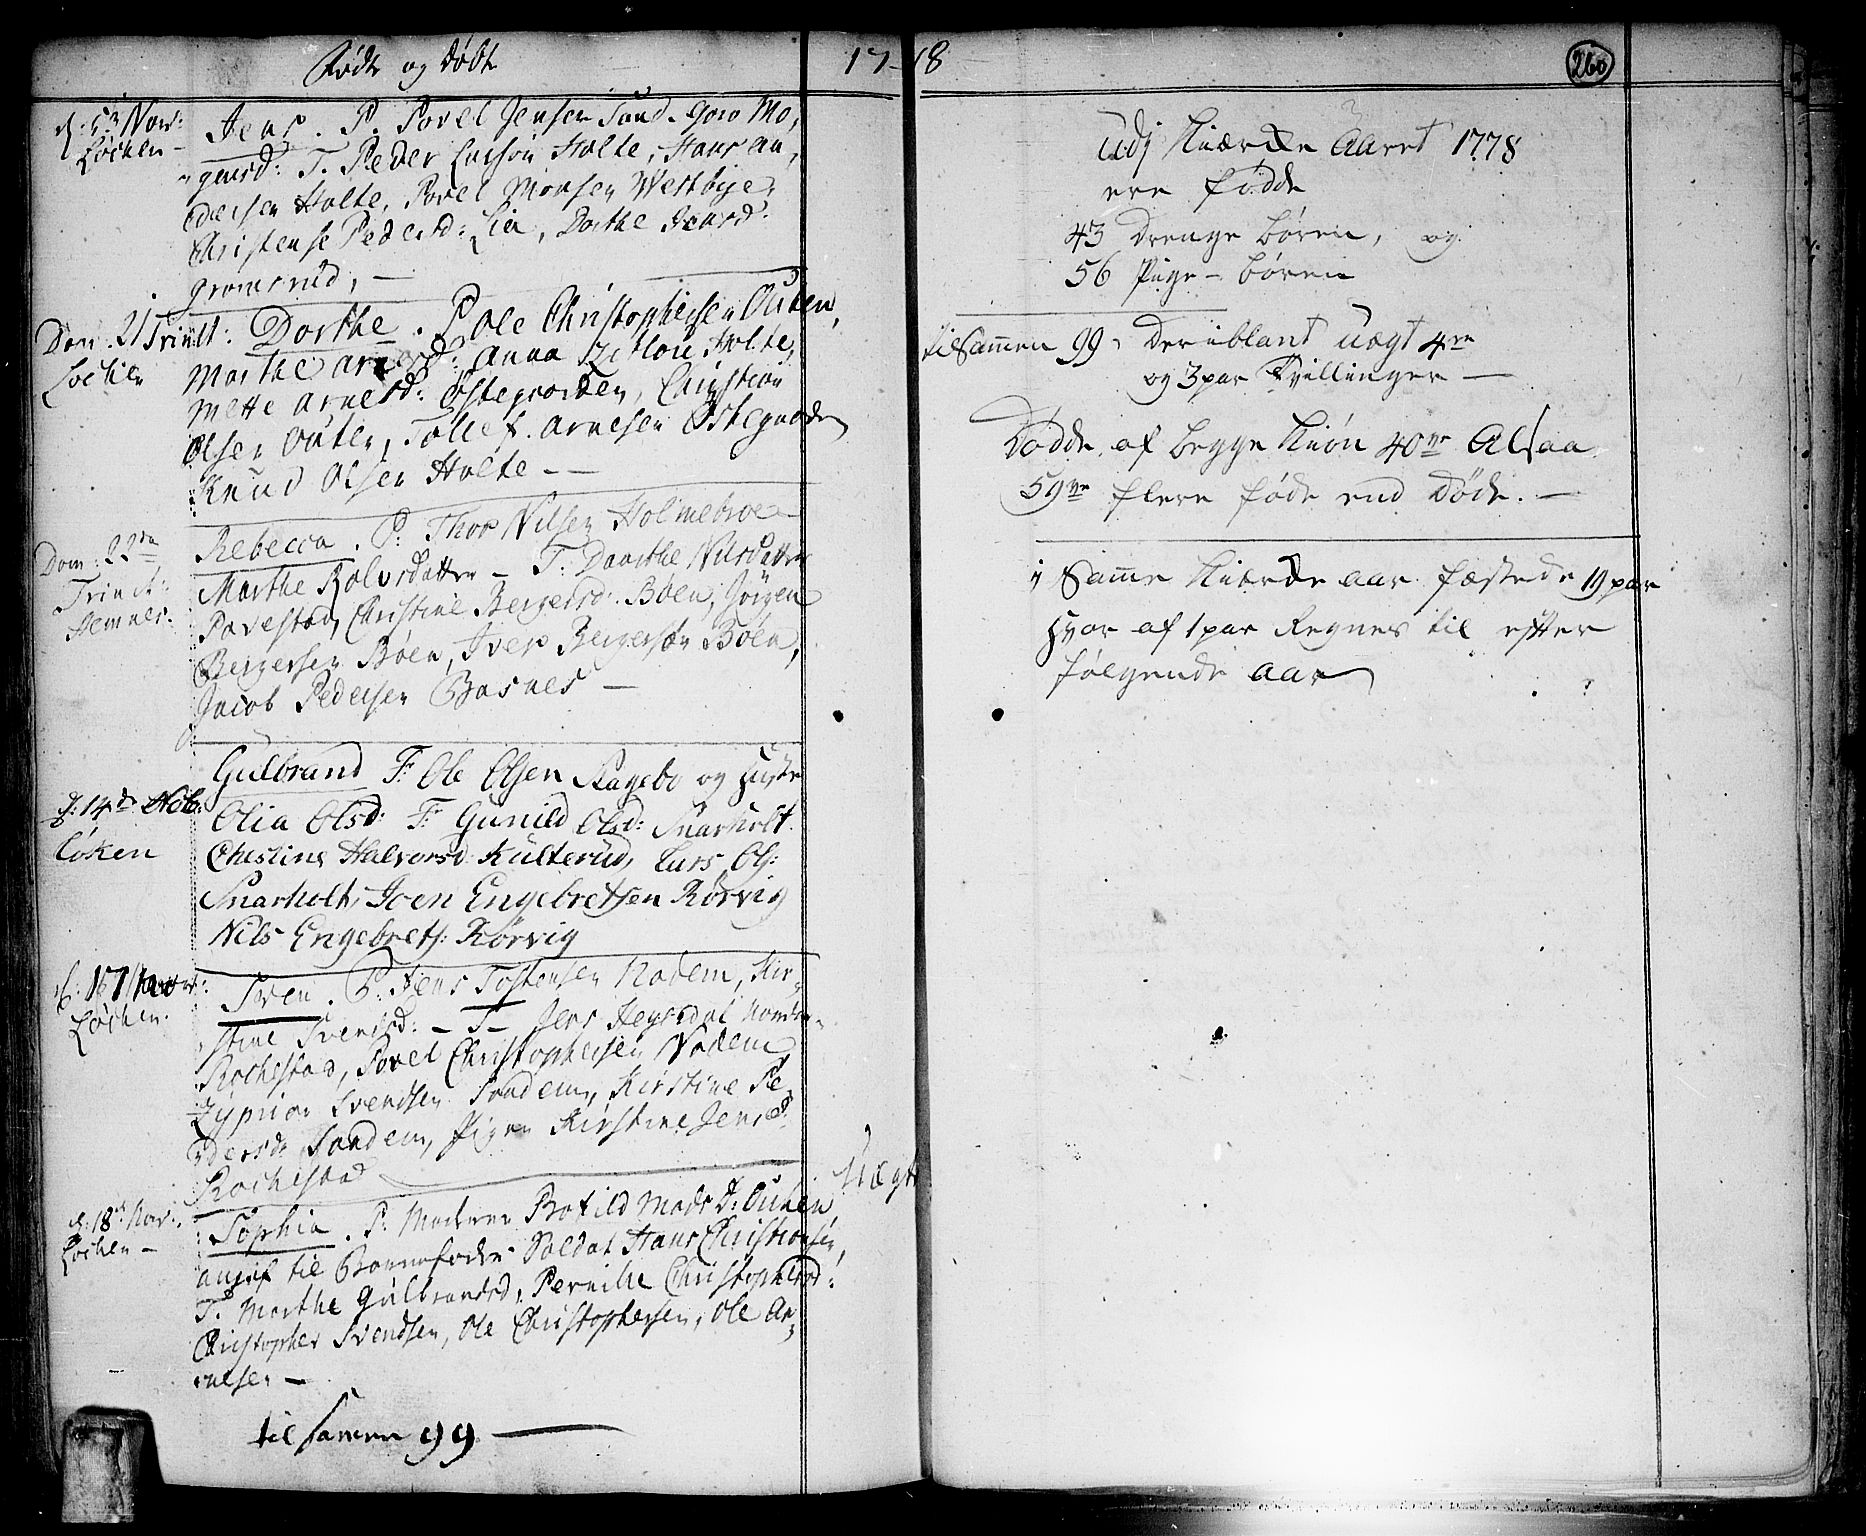 Födte og Döbte 17-78
260
Jens. P. Povel Jensen Sand. Goro Mo,
gensd: T. Peder Larsön Holte, Hans An,
dersen Holte, Povel Monsen Westbye,
Christense Pedersd: Lier, Dorthe Jensd:
Gromsrud, —
d: 3 Nov:
Löchen —
Dom. 21 Trinit:
Löchen
Dorthe. P. Ole Christophersen Outen,
Marthe Arnesd: Anna Holte,
Mette Arnesd: Östegaarden, Christian
Olsen Outen, Tollef Arnesen Östegaarden
Knud Olsen Holte — —
Dom: 22
Trinit:
Hemnes.
Rebecca. P: Thor Nilsen Holmebroe
Marthe Rolvsdatter — T: Dorthe Nilsdatter
Povestad, Christine Bergersd: Böen, Jörgen
Bergersen Böen, Iver Bergersön Böen,
Jacob Pedersen Bosnes —
d: 14de Nob:
Löken
Gulbrand F: Ole Olsen Hagebo og Hustr
Olia Olsd: F: Gunild Olsd: Snarholt.
Chestine Halvorsd Kulterud, Lars Ols:
Snarholt, Joen Engebretsen Rörvig
Nils Engebrets: Rörvig
d: 17 Nov:
Löchen.
Sven. P: Jens Tostensen Nadem, Kir,
stine Svendsd: — T — Jens Heysdal
Rochestad, Povel Christophersen Nadem
Zyprian Svendsen Sandem, Kirstine Pe,
dersd: Sandem, Pigen Kirstine Jensd:
Rochestad
d: 18de Nov:
Löchen —
Uægte
Sophia. P: Moderen Botild Mads D: Outen
angif til Barnefader Soldat Hans Christiansen,
T. Marthe Gulbrandsd, Pernille Christophersd:
Christopher Svendsen, Ole Christophersen, Ole Ar,
nesen —
til samen 99 —
Udj Kircke Aaret 1778
ere födde
43 Drenge börn, og
56 Pige - börn
tilsammen 99, Deriblant uægt 4re
og 3 par Tvillinger —
Dödde af begge Kiön 40ve Alsaa
59ve flere föde end döde. —
i Samme Kircke aar fæstede 19 par
Hvor af 1 par Regnes til efter
følgende aar